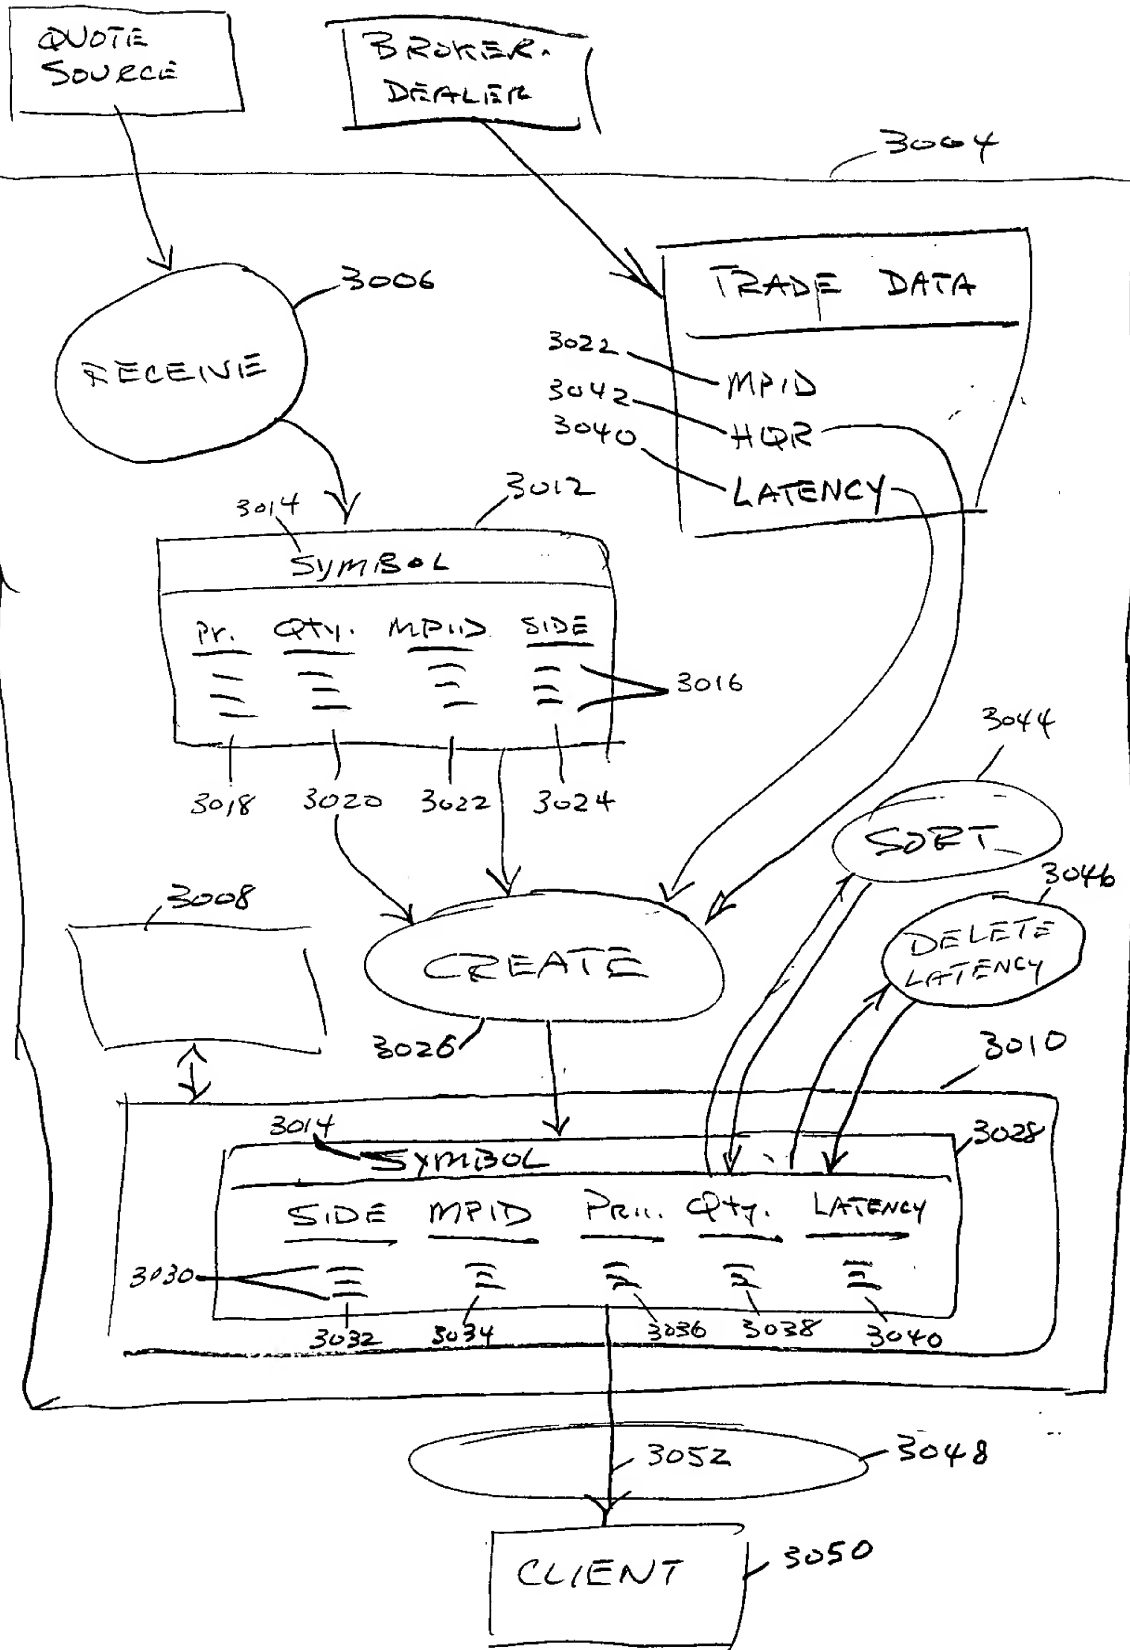 QUOTE
SOURCE
BROKER-
DEALER
3004
3006
TRADE DATA
RECEIVE
3022
MPID
3042
HQR
3040
LATENCY
3014
3012
SYMBOL
Pr. Qty. MPID SIDE
3016
3018 3020 3022 3024
3044
SORT
3046
3008
DELETE
LATENCY
CREATE
3026
3010
3014
3028
SYMBOL
SIDE MPID Pri. Qty. LATENCY
3030
3032 3034 3036 3038 3040
3052
3048
CLIENT
3050